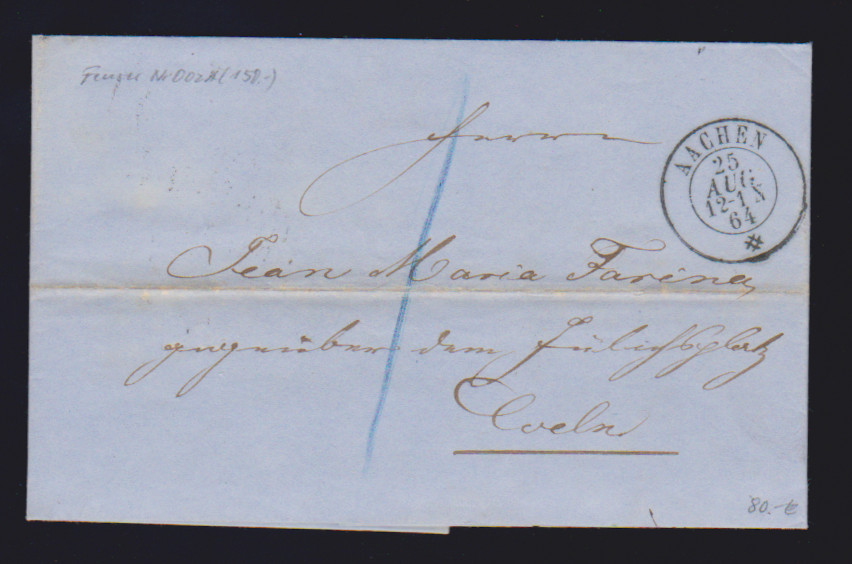 (150.-)
Herrn
AACHEN
25
AUG
12-1 N
64
Jean Maria Farina
gegenüber dem Jülichsplatz
Coeln
80.-€